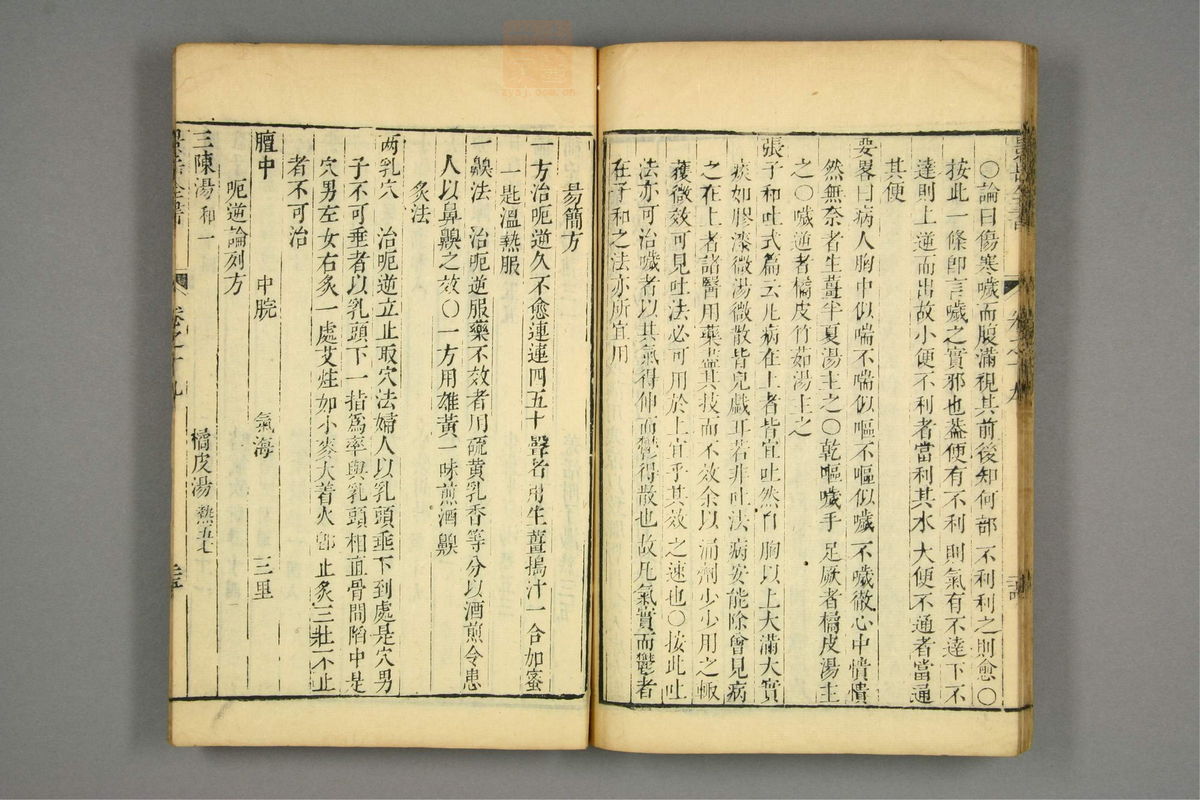 ○論曰傷寒噦而腹滿視其前後知何部不利利之則愈○
按此一條卽言噦之實邪也葢便有不利則氣有不達下不
達則上逆而出故小便不利者當利其水大便不通者當通
其便
要畧曰病人胸中似喘不喘似嘔不嘔似噦不噦徹心中憒憒
然無奈者生薑半夏湯主之○乾嘔噦手足厥者橘皮湯主
之○噦逆者橘皮竹茹湯主之
張子和吐式篇云凡病在上者皆宜吐然自胸以上大滿大實
痰如膠漆微湯微散皆兒戲耳若非吐法病安能除曾見病
之在上者諸醫用藥盡其技而不效余以涌劑少少用之輙
獲微效可見吐法必可用於上宜乎其效之速也○按此吐
法亦可治噦者以其氣得伸而鬱得散也故凡氣實而鬱者
在子和之法亦所宜用
卷之十九
易簡方
一方治呃逆久不愈連連四五十聲者用生薑搗汁一合加蜜
一匙溫熱服
一齅法 治呃逆服藥不效者用硫黃乳香等分以酒煎令患
人以鼻齅之效○一方用雄黃一味煎酒齅
灸法
两乳穴 治呃逆立止取穴法婦人以乳頭垂下到處是穴男
子不可垂者以乳頭下一指為率與乳頭相直骨間陷中是
穴男左女右灸一處艾炷如小麥大着火卽止灸三壯不止
者不可治
膻中 中脘 氣海 三里
呃逆論列方
二陳湯 和一 橘皮湯 熱五七
景岳全書 卷之十九